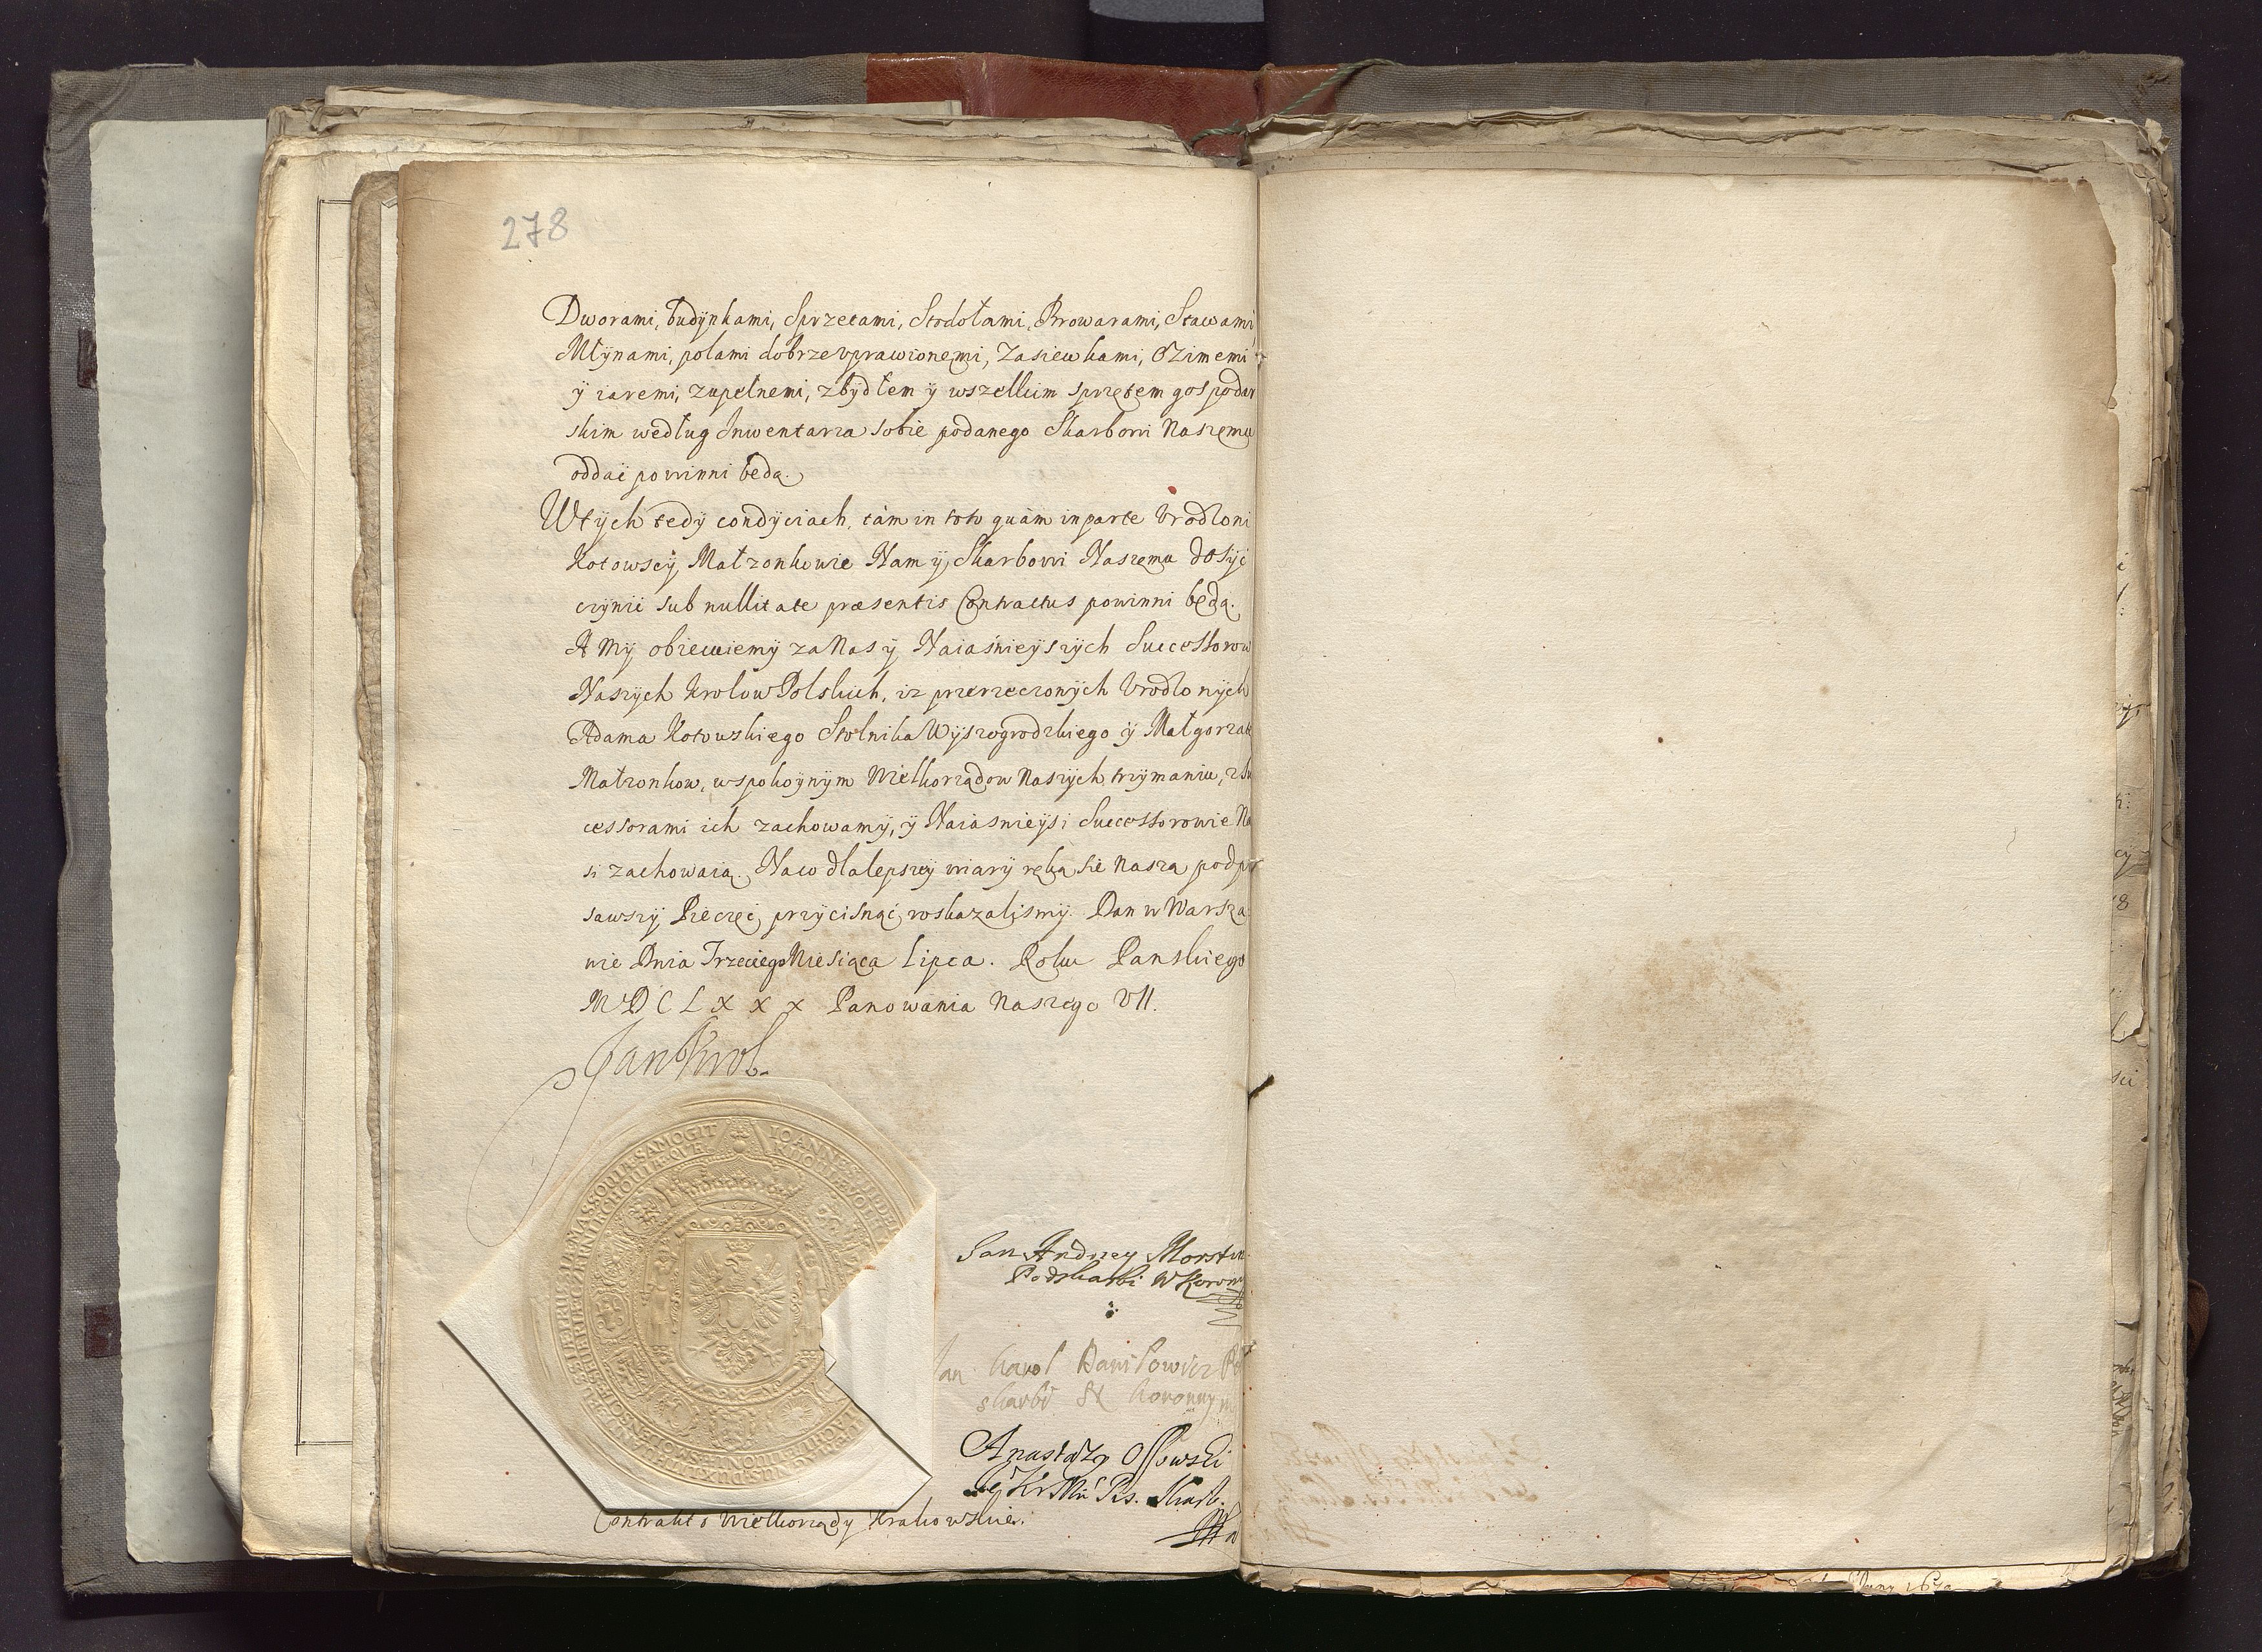 278
Dworami, budÿnkami, Sprzetami, Stodołami, Browarami, Stawami
Młÿnami, polami dobrze vprawionemi, Zasiewkami, Ozimemi
ÿ iaremi, zupełnemi, z bÿdłem ÿ wszellkim sprzętem gospodar
skim według Inwentarza sobie podanego Skarbowi Naszemu
oddać powinni będą.
W tÿch tedÿ condÿciach, tàm in toto quàm in parte Vrodzoni
Kotowscÿ Małżonkowie Nam ÿ Skarbowi Naszemu dosÿć
czÿnić sub nullitate præsentis Contractus powinni będą.
A Mÿ obiecuiemÿ za Nas ÿ Naiaśnieÿszÿch Successorow
Naszÿch Krolow Polskich, iz przerzeczonÿch Vrodzonÿch
Adama Kotowskiego Stolnika Wÿszogrodzkiego ÿ Małgorzatę
Małzonkow, w spokoÿnÿm Wielkorządow Naszÿch trzÿmaniu, z Su
cessorami ich zachowamÿ, ÿ Naiasnieÿsi Successorowie Na
si zachowaią. Na co dla lepszeÿ wiarÿ ręką się Naszą podpi
sawszÿ Pieczęć przÿcisnąć roskazalismÿ. Dan w Warsza
wie Dnia Trzeciego Miesiąca Lipca. Roku Panskiego
MDCLXXX Panowania Naszego VII.
Jan Krol
IOANNES III DEI
SAMOGIT
KIIOVIÆ VOLH
MASSOVIÆ
CZERNIECHOVIÆ QVE
Jan Andrzey Morstin
Podskarbi W Koronny
Jan Karol Daniłowicz Pod
skarbi N Koronny
Anastazy Ossowski
Pis. Skarb.
Contrakt o Wielkorządy Krakowskie.